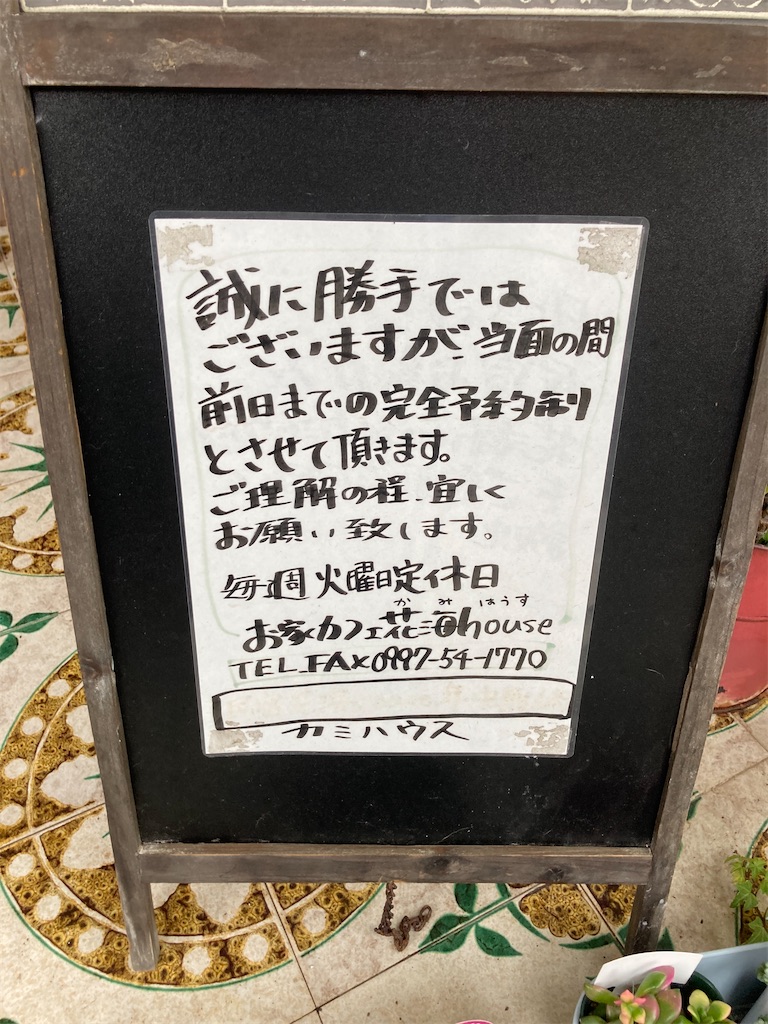 誠に勝手では
ございますが、当面の間
前日までの完全予約制
とさせて頂きます。
ご理解の程、宜しく
お願い致します。
毎週火曜日定休日
かみはうす
お家カフェ花海house
TEL.FAX0997-54-1770
カミハウス